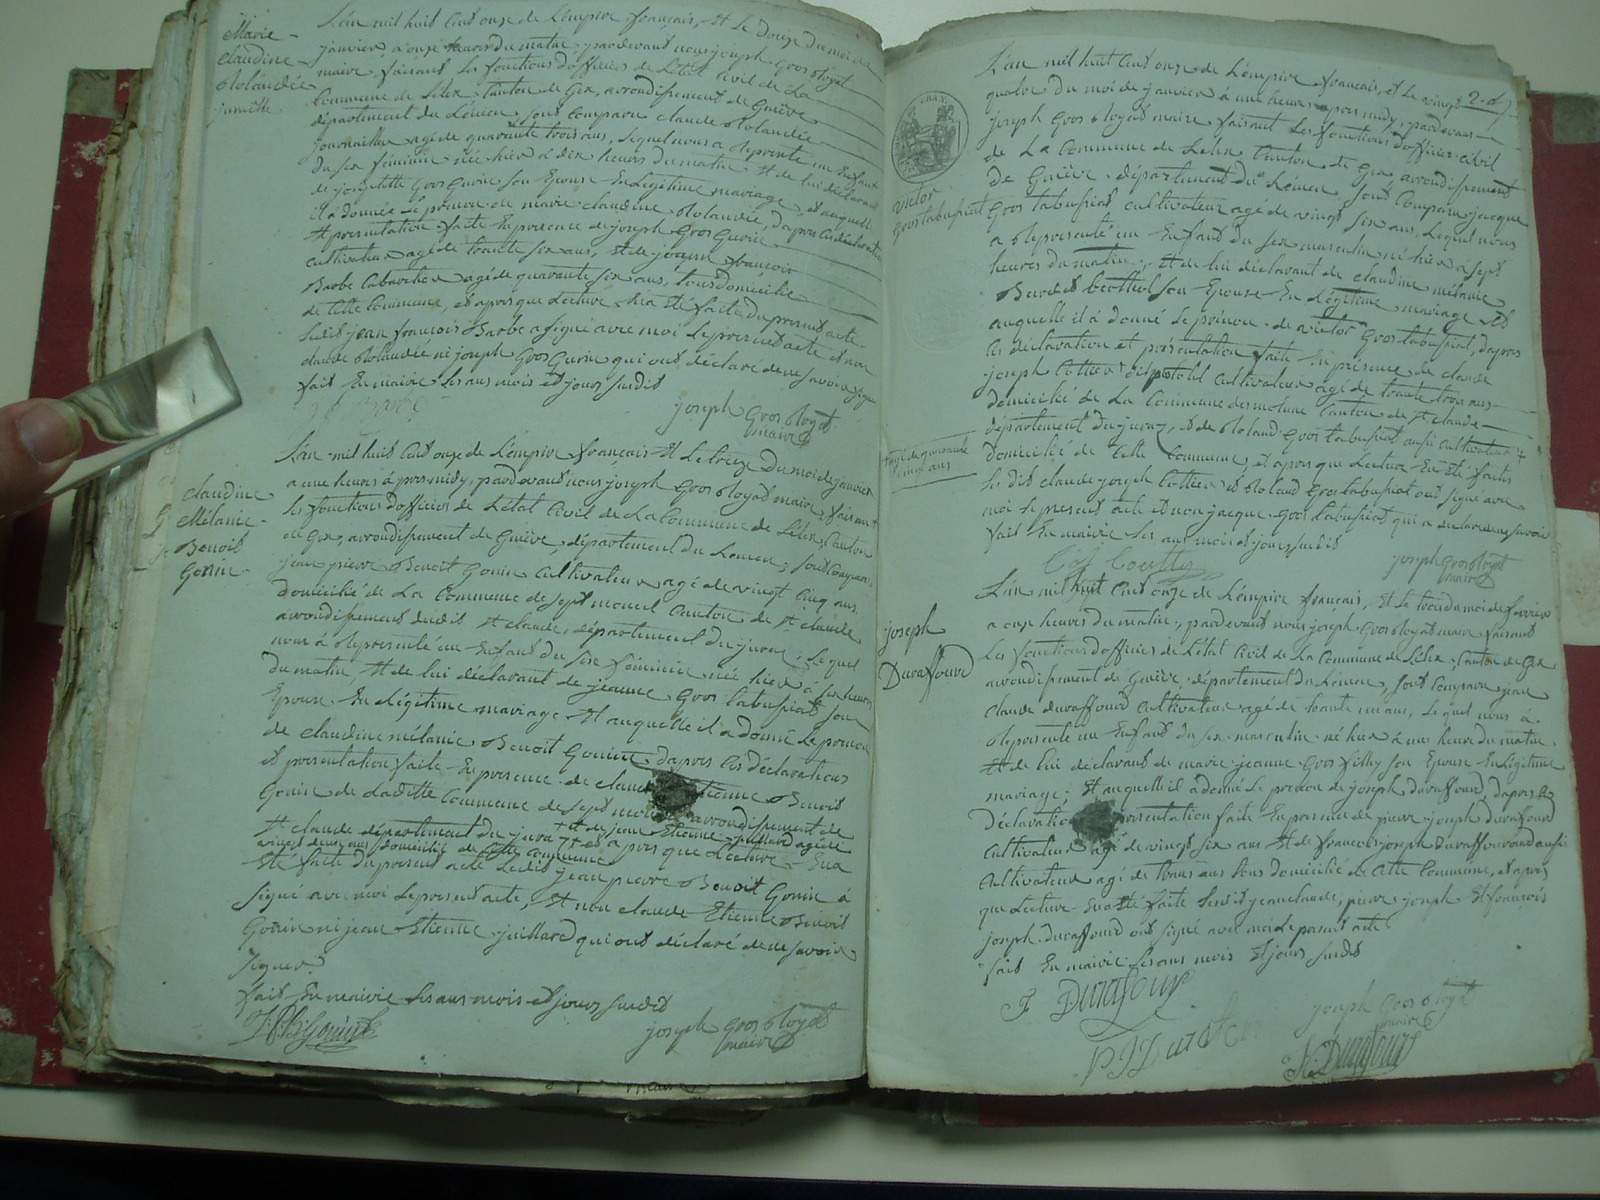 Marie
Claudine
Rolandée
jumelle
L'an mil huit cent onze de L'empire français, et le Douze du moi de
janvier à onze heures du matin, pardevant nous joseph Gros Royat
maire, faisant les fonctions d'officier de L'état civil de La
Commune de Lélex, Canton de Gex, arrondissement de Genève
département du Léman, sont Comparu claude Rolandée
journailler agé de quarante trois ans, lequel nous a représenté un Enfant
du sex féminin née hier à dix heures du matin Et de lui déclarant
de josephtte Gros Gurin son Epouse En Légitime mariage, et auquelle
il a donnée Le prénom de marie claudine Rolandée, d'apres Ces déclaration
Et présentation faite En présence de joseph Gros Gurin
cultivateur agé de trante six ans, Et de jean françois
Barbe Cabaretier agé de quarante six ans, tous domicilié
de Cette Commune, et apres que Lecture En a Eté faite du présent acte
Ledit jean françois Barbe a signé avec moi Le présent acte Et non
claude Rolandée ni joseph Gros Gurin qui ont déclaré de ne savoir signer
fait En mairie Les ans mois et jours susdit
joseph Gros Royat
maire
Claudine
Mélanie
Benoit
Gonin
L'an mil huit Cent onze de L'empire français Et Le treize du moi de janvier
a une heure après midy, pardevant nous joseph Gros Royat maire, faisant
les fonctions d'officier de L'état Civil de La Commune de Lélex, Canton
de Gex, arrondissement de Genève, département du Léman, sont Comparu
jean pierre Benoit Gonin Cultivateur agé de vingt Cinq ans
domicilié de La Commune de Sept moncel Canton de St claude
arrondissement dudit St claude, département du jura, Le quel
nous à Représenté un Enfant du sexe féminin née hier à six heures
du matin Et de lui déclarant de jeanne Gros tabussiat son
Epouse En Légitime mariage Et auquelle il a donné Le prénom
de claudine mélanie Benoit Gonin, d'apres Ces déclarations
et présentation faite En présence de claude Etienne Benoit
Gonin de Laditte Commune de Sept moncel arrondissement de
St claude département du jura + et de jean Etienne juillard agé de
vingt deux ans domicilié de Cette Commune + et apres que Lecture En a
Eté faite du présent acte Ledit jean pierre Benoit Gonin à
signé avec moi Le présent acte, Et non claude Etienne Benoit
Gonin ni jean Etienne juillard qui ont déclaré de ne savoir
signer
fait En mairie Les ans mois et jours susdit
J P B Gonin
joseph Gros Royat
maire
Victor
Gros tabussiat
L'an mil huit Cent onze de L'empire français, et Le vingt
quatre du moi de janvier à une heure apres midy, pardevant
joseph Gros Royat maire faisant Les fonctions d'officier civil
de La Commune de Lélex Canton de Gex arrondissement
de Genève département du Léman, sont Comparu jacque
Gros tabussiat cultivateur agé de vingt six ans, Lequel nous
a Représenté un Enfant du sex masculin né hier à sept
heures du matin, Et de lui déclarant de claudine mélanie
Benoit berthol son Epouse En Légitime mariage Et
auquelle il à donné Le prénom de victor Gros tabussiat, d'apres
Ces déclaration et présentation faite En présence de claude
joseph Cottier Cultivateur agé de trante trois ans
domicilié de La Commune des molune Canton de St claude
département du jura, et de Roland Gros tabussiat aussi Cultivateur +
domicilié de Cette Commune, et apres que Lecture En Eté faite
+ agé de quarante
vingt ans
Les dits claude joseph Cottier Et Roland Gros tabussiat ont signé avec
moi Le présent acte Et non jacque Gros tabussiat qui a déclaré ne savoir
fait En mairie Les ans mois et jours susdits
joseph Gros Royat
maire
joseph
Duraffourd
L'an mil huit Cent onze de L'empire français, Et Le trois du moi de fevrier
a onze heures du matin, pardevant nous joseph Gros Royat maire faisant
Les fonctions d'officier de L'état Civil de La Commune de Lélex, Canton de Gex
arrondissement de Genève département du Léman, sont Comparu jean
claude duraffourd Cultivateur agé de trante un ans, Le quel nous à
Représenté un Enfant du sex masculin né hier à une heure du matin
Et de lui déclarant de marie jeanne Gros filley son Epouse En Légitime
mariage; Et auquelle il à donné Le prénom de joseph duraffourd, d'apres Ces
Déclaration présentation faite En présence de pierre joseph duraffourd
Cultivateur agé de vingt six ans Et de françois joseph duraffourd aussi
Cultivateur agé de trante ans tous domicilié de Cette Commune, et apres
que Lecture En a Eté faite Lesdit jean claude, pierre joseph Et françois
joseph duraffourd ont signé avec moi Le présent acte
fait En mairie Les ans mois Et jours susdit
J Duraffourd
joseph Gros Royat
maire
P J Duraffour